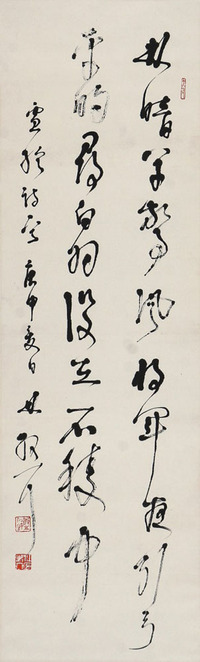 林暗草驚風将軍夜引弓
平明尋白羽没在石稜中
盧綸詩意 庚申夏日 林散耳